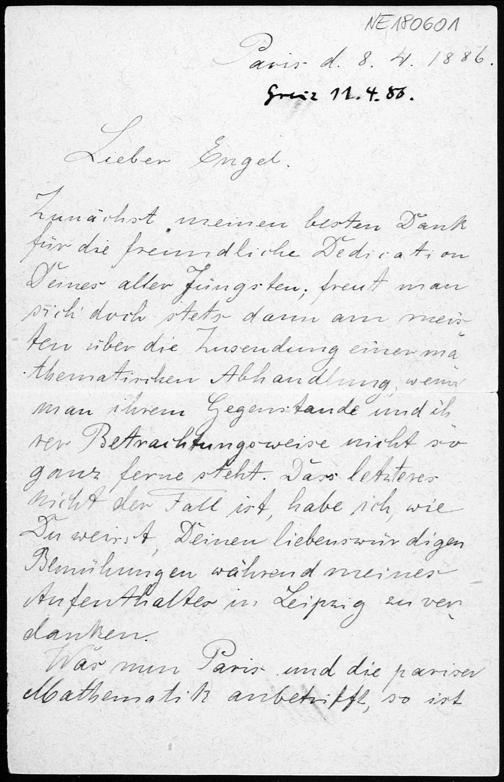 NE180601
Paris d. 8. 4. 1886.
Greiz 11.4.86.
Lieber Engel.
Zunächst meinen besten Dank
für die freundliche Dedication
Deines aller Jüngsten; freut man
sich doch stets dann am meis-
ten über die Zusendung einer ma
thematischen Abhandlung, wenn
man ihrem Gegenstande und ih
rer Betrachtungsweise nicht so
ganz ferne steht. Dass letzteres
nicht der Fall ist, habe ich, wie
Du weisst, Deinen liebenswürdigen
Bemühungen während meines
Aufenthaltes in Leipzig zu ver
danken.
Was nun Paris und die pariser
Mathematik anbetrifft, so ist